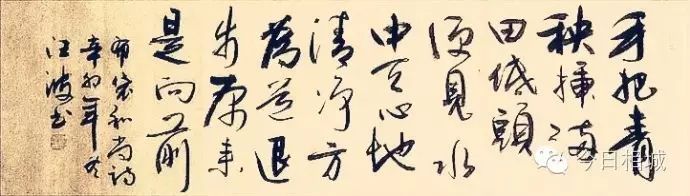 手把青
秧插满
田低頭
便見水
中天心地
清净方
為道退
步原来
是向前
布袋和尚诗
辛卯年冬
汪波书
今日相城